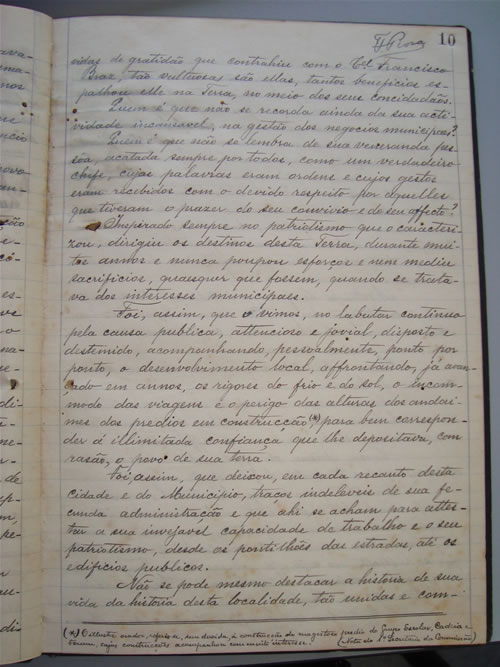 10
vidas de gratidão que contrahiu com o Cel. Francisco
Braz; tão vultuosas são ellas, tantos beneficios es-
palhou elle na Terra, no meio dos seus concidadãos.
Quem é que não se recorda ainda da sua acti-
vidade incansavel, na gestão dos negocios municipaes?
Quem é que não se lembra de sua veneranda pes-
sôa, acatada sempre por todos, como um verdadeiro
chefe, cujas palavras eram ordens e cujos gestos
eram recebidos com o devido respeito por aquelles
que tiveram o prazer do seu convivio e do seu affecto?
Inspirado sempre no patriotismo que o caracteri-
zou, dirigiu os destinos desta Terra, durante mui-
tos annos e nunca poupou esforços e nem mediu
sacrificios, quaesquer que fossem, quando se trata-
va dos interesses municipaes.
Foi, assim, que o vimos, no labutar continuo
pela causa publica, attencioso e jovial, disposto e
destemido, acompanhando, pessoalmente, ponto por
ponto, o desenvolvimento local, affrontando, já avan-
çado em annos, os rigores do frio e do sol, o incom-
modo das viagens e o perigo das alturas dos andai-
mes dos predios em construcção, (*) para bem correspon-
der á illimitada confiança que lhe depositava, com
rasão, o povo de sua terra.
Foi, assim, que deixou, em cada recanto desta
cidade e do Municipio, traços indeleveis de sua fe-
cunda administração e que ahi se acham para attes-
tar a sua invejável capacidade de trabalho e o seu
patriotismo, desde os pontilhões das estradas, até os
edificios publicos.
Não se pode mesmo destacar a historia de sua
vida da historia desta localidade, tão unidas e com-
(*) O illustre orador, refere-se, sem duvida, á construcção do magestoso predio do Grupo Escolar, Cadeia e
Forum, cujas construcções acompanhou com muito interesse. (Nota do 1º Secretario da Commissão)